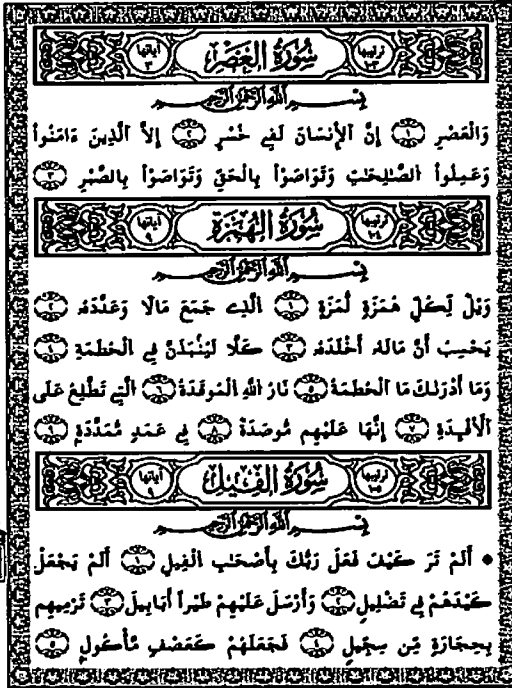 ترتيبها ١٠٣ سُورَةُ الْعَصْرِ آياتها ٣
بِسْمِ اللَّهِ الرَّحْمَٰنِ الرَّحِيمِ
وَالْعَصْرِ ۝١ إِنَّ الْأِنسَانَ لَفِي خُسْرٍ ۝٢ إِلاَّ الَّذِينَ ءَامَنُواْ
وَعَمِلُواْ الصَّٰلِحَٰتِ وَتَوَاصَوْاْ بِالْحَقِّ وَتَوَاصَوْاْ بِالصَّبْرِ ۝٣
ترتيبها سُورَةُ الْهُمَزَةِ آياتها ٩
بِسْمِ اللَّهِ الرَّحْمَٰنِ الرَّحِيمِ
وَيْلٌ لِّكُلِّ هُمَزَةٍ لُّمَزَةٍ ۝١ الَّذِے جَمَعَ مَالًا وَعَدَّدَهُۥ ۝٢
يَحْسِبُ أَنَّ مَالَهُۥ أَخْلَدَهُۥ ۝٣ كَلَّا لَيُنۢبَذَنَّ فِي الْحُطَمَةِ ۝٤
وَمَا أَدْرَىٰكَ مَا الْحُطَمَةُ ۝٥ نَارُ اللَّهِ الْمُوقَدَةُ ۝٦ الَّتِي تَطَّلِعُ عَلَى
الْأَفْـِٕدَةِ ۝٧ إِنَّهَا عَلَيْهِم مُّوصَدَةٌ ۝٨ فِي عَمَدٍ مُّمَدَّدَةٍ ۝٩
ترتيبها ١٠٥ سُورَةُ الْفِيلِ آياتها
بِسْمِ اللَّهِ الرَّحْمَٰنِ الرَّحِيمِ
• أَلَمْ تَرَ كَيْفَ فَعَلَ رَبُّكَ بِأَصْحَٰبِ الْفِيلِ ۝١ أَلَمْ يَجْعَلْ
كَيْدَهُمْ فِي تَضْلِيلٍ ۝٢ وَأَرْسَلَ عَلَيْهِمْ طَيْراً أَبَابِيلَ ۝٣ تَرْمِيهِم
بِحِجَارَةٍ مِّن سِجِّيلٍ ۝٤ فَجَعَلَهُمْ كَعَصْفٍ مَّأْكُولٍ ۝٥